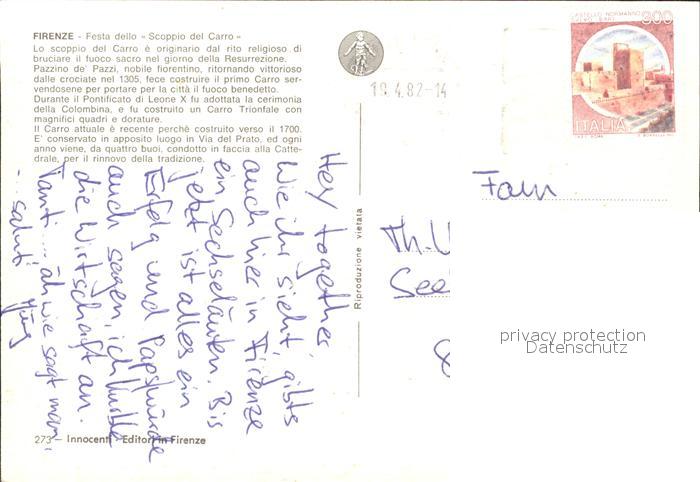 FIRENZE - Festa dello « Scoppio del Carro »
Lo scoppio del Carro è originario dal rito religioso di
bruciare il fuoco sacro nel giorno della Resurrezione.
Pazzino de' Pazzi, nobile fiorentino, ritornando vittorioso
dalle crociate nel 1305, fece costruire il primo Carro ser-
vendosene per portare per la città il fuoco benedetto.
Durante il Pontificato di Leone X fu adottata la cerimonia
della Colombina, e fu costruito un Carro Trionfale con
magnifici quadri e dorature.
Il Carro attuale è recente perchè costruito verso il 1700.
E' conservato in apposito luogo in Via del Prato, ed ogni
anno viene, da quattro buoi, condotto in faccia alla Catte-
drale, per il rinnovo della tradizione.
Hey together,
Wie ihr sieht, gibts
auch hier in Firenze
ein Sechseläuten. Bis
jetzt ist alles ein
Erfolg und
auch sagen, ich
die Wirtschaft an.
Tanti ... äh wie sagt man..
... saluti
273 - Innocenti - Editori in Firenze
Riproduzione vietata
19.4.82-14
CASTELLO NORMANNO
SVEVO BARI
300
ITALIA
Fam
Th.
See
privacy protection
Datenschutz